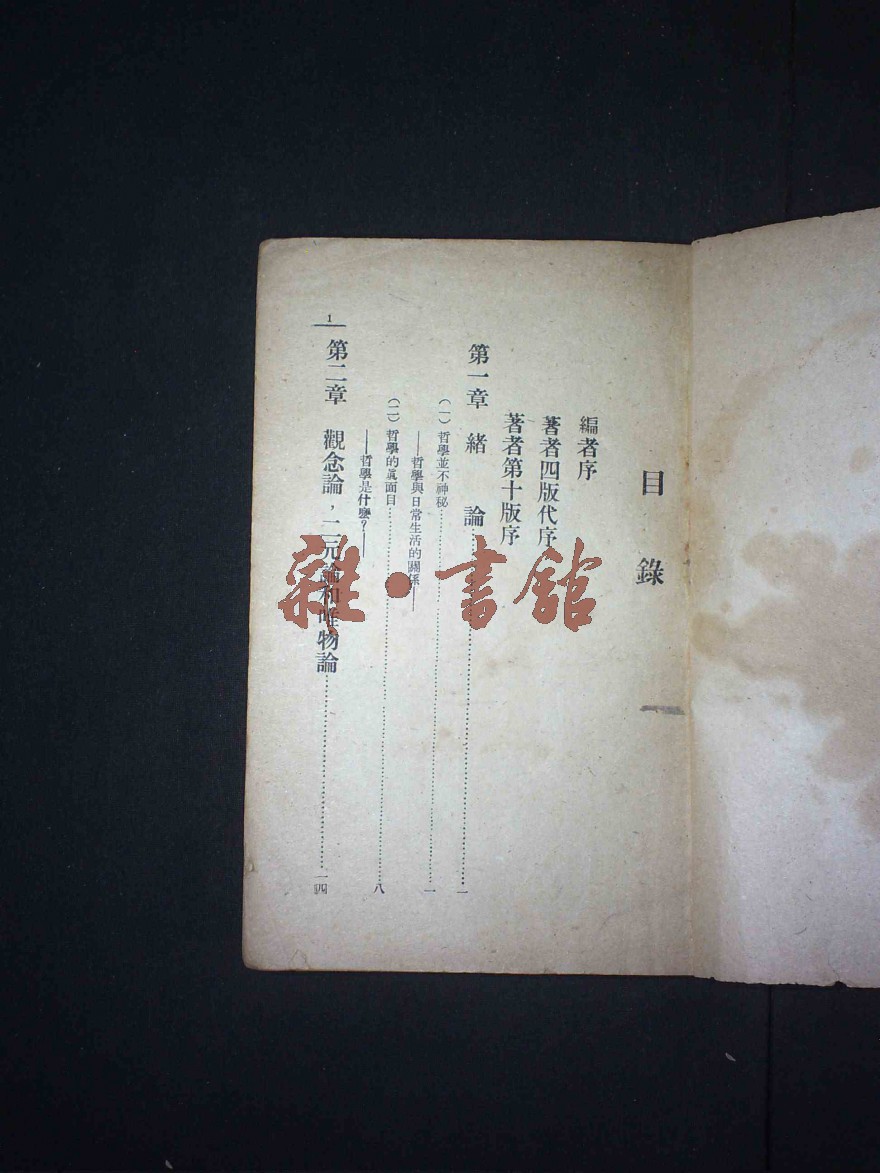 目錄
編者序
著者四版代序
著者第十版序
第一章 緒論……一
(一)哲學並不神秘……一
——哲學與日常生活的關係——
(二)哲學的眞面目……八
——哲學是什麼?——
第二章 觀念論,二元論和唯物論……一四
1
雜·書館